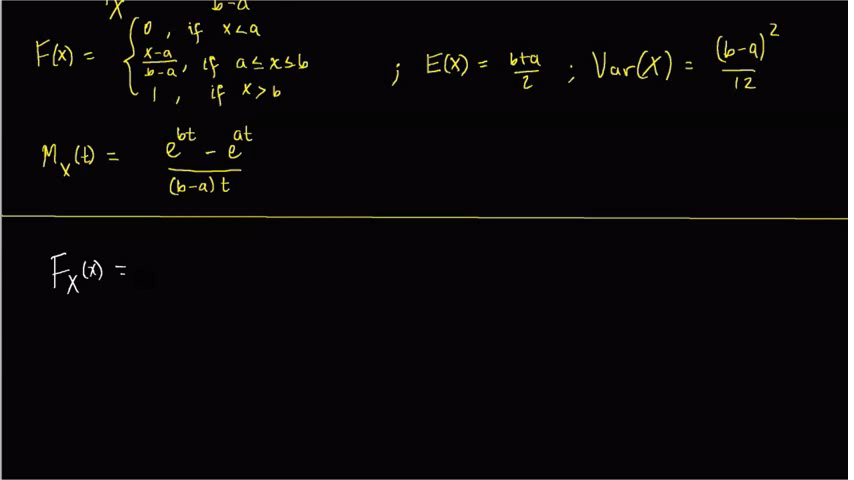 X b-a
F(x) = { 0, if x<a
x-a/b-a, if a≤x≤b
1, if x>b
; E(X) = b+a/2 ; Var(X) = (b-a)²/12
M_X(t) = e^bt - e^at/(b-a)t
F_X(x) =